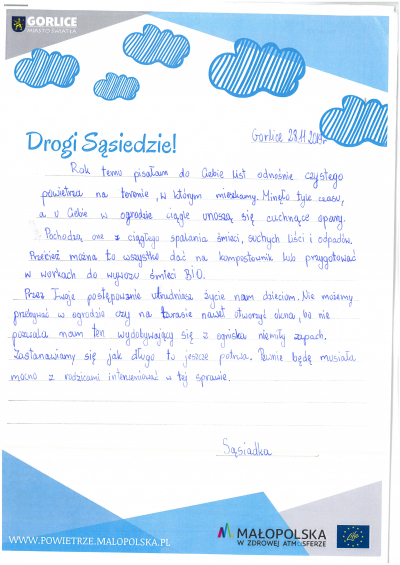 GORLICE
MIASTO ŚWIATŁA
Gorlice 28.11.2019r
Drogi Sąsiedzie!
Rok temu pisałam do Ciebie list odnośnie czystego
powietrza na terenie, w którym mieszkamy. Minęło tyle czasu,
a u Ciebie w ogrodzie ciągle unoszą się cuchnące opary.
Pochodzą one z ciągłego spalania śmieci, suchych liści i odpadów.
Przecież można to wszystko dać na kompostownik lub przygotować
w workach do wywozu śmieci BIO.
Przez Twoje postępowanie utrudniasz życie nam dzieciom. Nie możemy
przebywać w ogrodzie czy na tarasie nawet otworzyć okna, bo nie
pozwala nam ten wydobywający się z ogniska niemiły zapach.
Zastanawiamy się jak długo to jeszcze potrwa. Pewnie będę musiała
mocno z rodzicami interweniować w tej sprawie.
Sąsiadka
WWW.POWIETRZE.MALOPOLSKA.PL
MAŁOPOLSKA
W ZDROWEJ ATMOSFERZE
Life